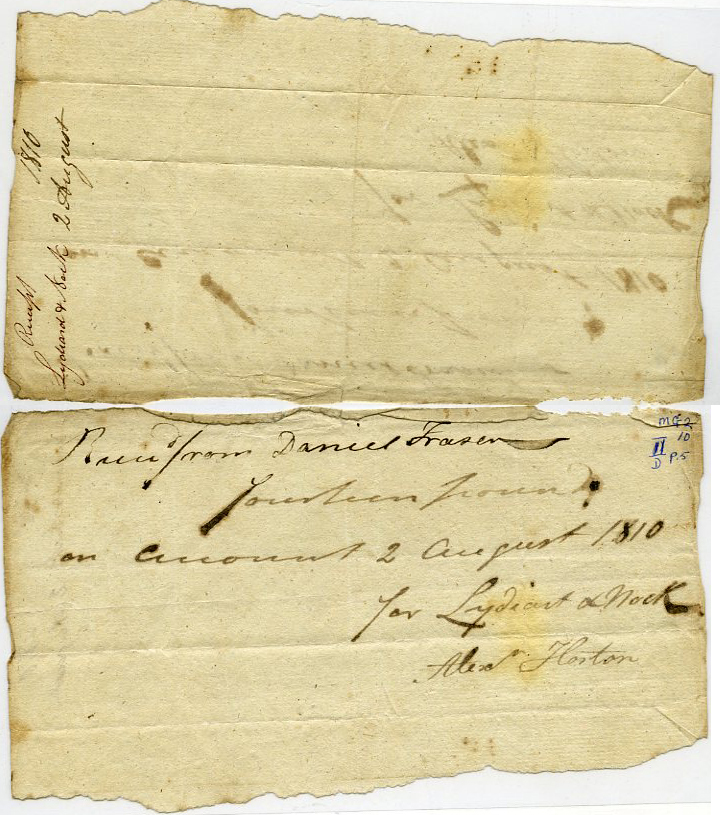 Receipt 1810
Lydiard & Nock 2 August
Receivd from Daniel Fraser
fourteen pounds
on account 2 August 1810
for Lydiart & Nock
Alexr Horton
MG2
10
II
D P.5